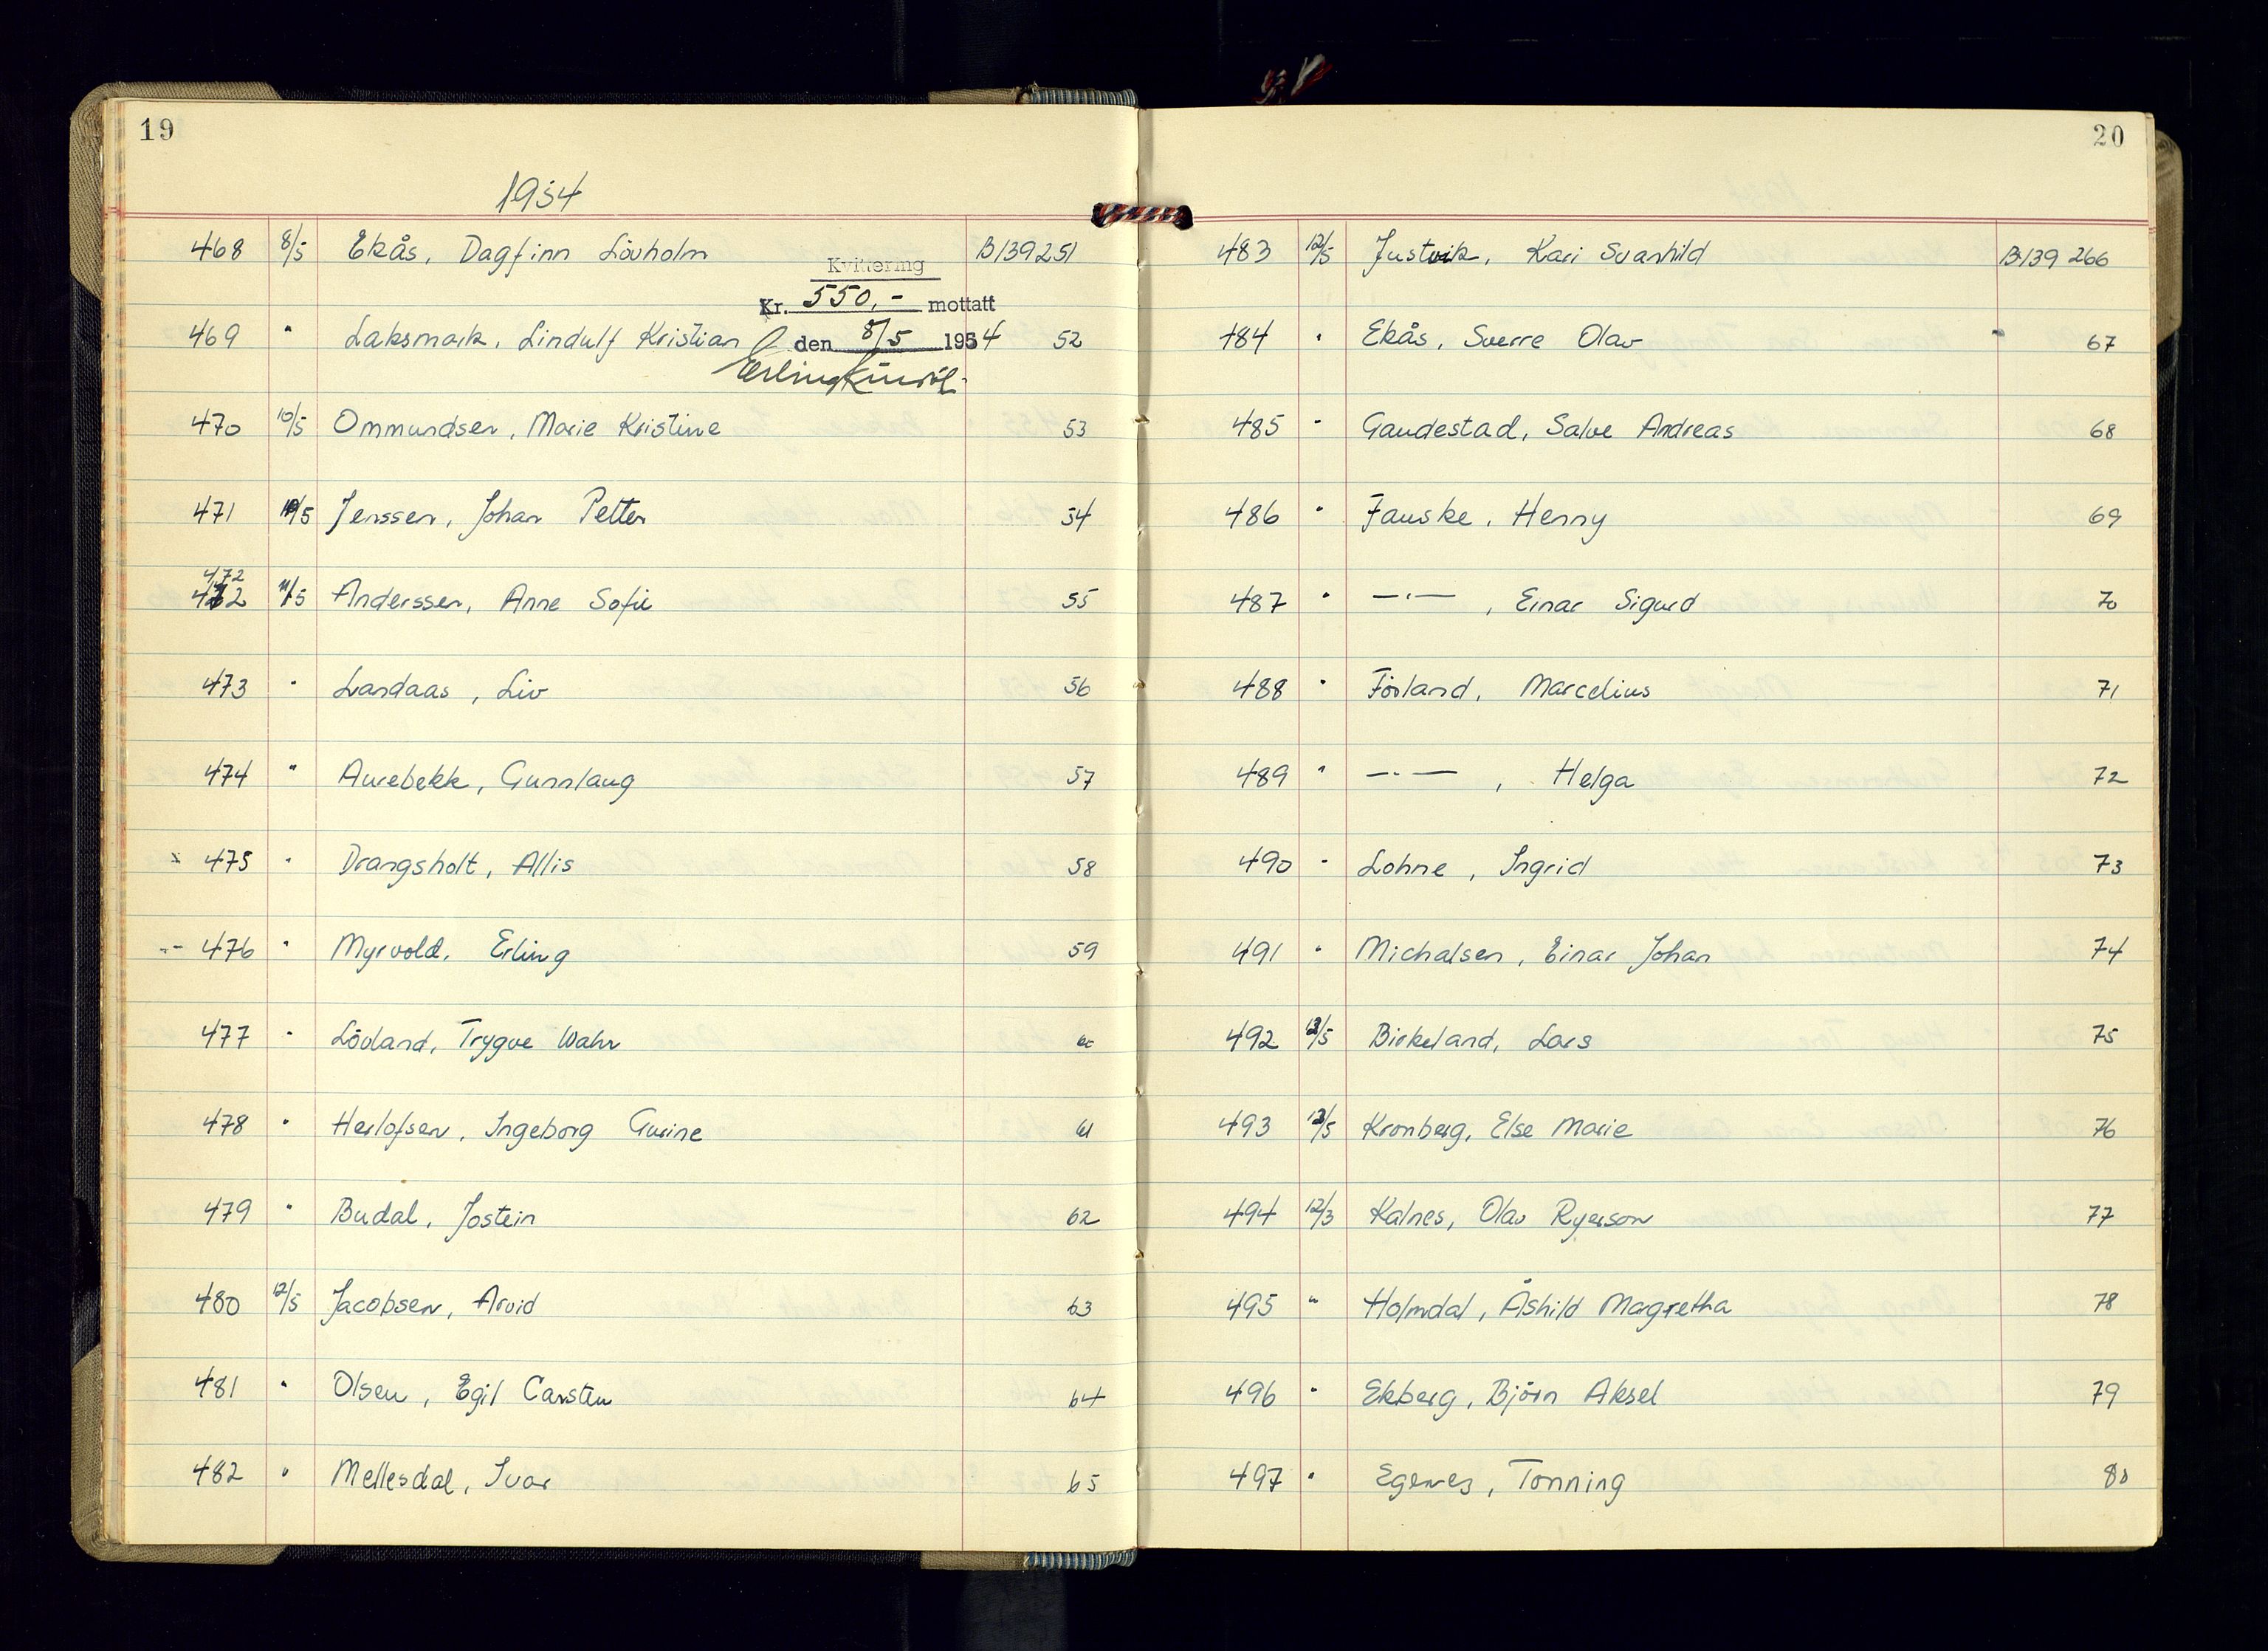 19
1954
468 8/5 Ekås, Dagfinn Lövholm B139251
Kvittering
Kr. 550,- mottatt
469 " Laksmark, Lindulf Kristian 52
den 8/5 1954
Erling
470 10/5 Ommundsen, Marie Kristine 53
471 10/5 Jenssen, Johan Petter 54
472
472 11/5 Anderssen, Anne Sofie 55
473 " Landaas, Liv 56
474 " Aurebekk, Gunnlaug 57
x 475 " Drangsholt, Allis 58
-"- 476 " Myrvold, Erling 59
477 " Lövland, Trygve Wahr 60
478 " Herlofsen, Ingeborg Gurine 61
479 " Budal, Jostein 62
480 12/5 Jacobsen, Arvid 63
481 " Olsen, Egil Carsten 64
482 " Mellesdal, Ivar 65
20
483 12/5 Justvik, Kari Svanhild B139266
484 " Ekås, Sverre Olav 67
485 " Gaudestad, Salve Andreas 68
486 " Fauske, Henny 69
487 " —"— , Einar Sigurd 70
488 " Försland, Marcelius 71
489 " —"— , Helga 72
490 " Lohne, Ingrid 73
491 " Michalsen, Einar Johan 74
492 12/5 Birkeland, Lars 75
493 12/5 Kronberg, Else Marie 76
494 12/3 Kalnes, Olav Ryerson 77
495 " Holmdal, Åshild Margretha 78
496 " Ekberg, Björn Aksel 79
497 " Egenes, Tonning 80